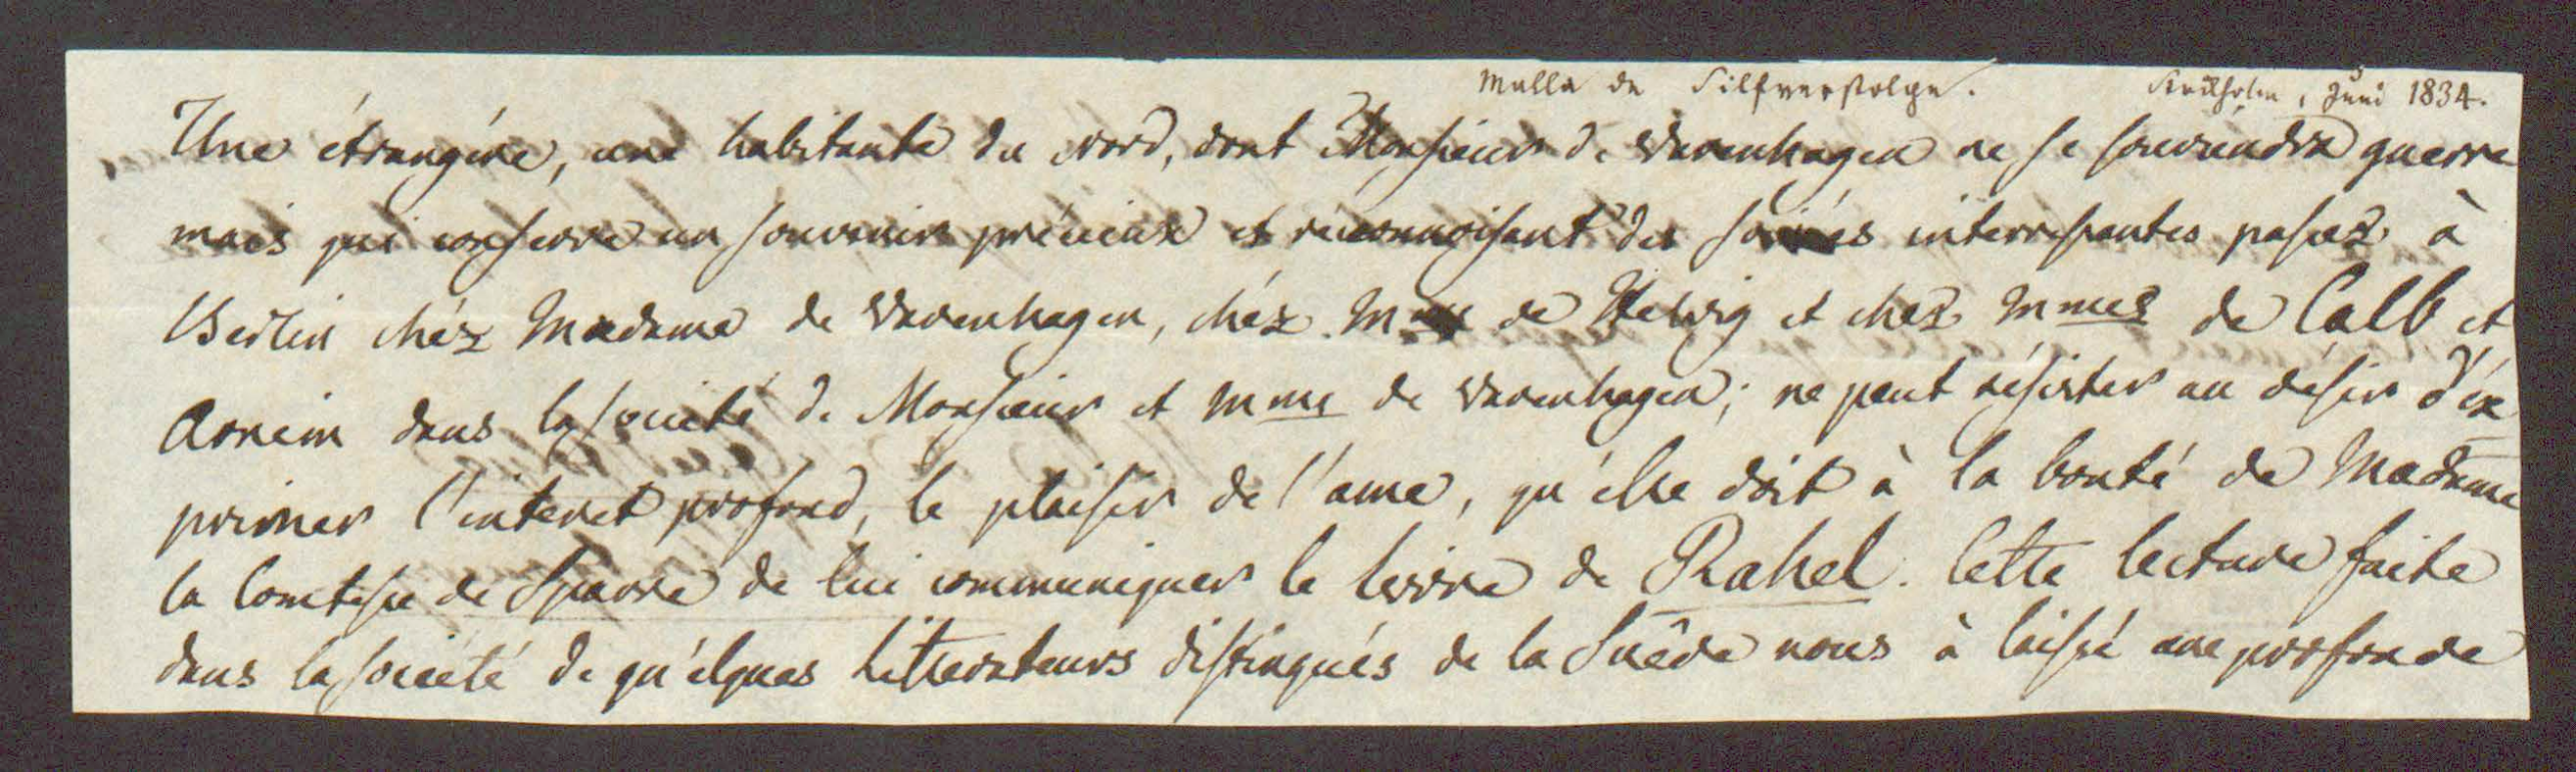 Malla de Silfverstolpe. Stockholm, Juni 1834.
Une étrangére, une habitante du nord, dont Monsieur de Varenhagen ne se souviendra guerre
mais qui conserve un souvenir précieux et reconnoisant des soirées interressantes passez à
Berlin chéz Madame de Varenhagen, chéz Mme de Helvig et chez Mmes de Calb et
Arnim dans la societé de Monsieur et Mme de Varenhagen; ne peut résister au désir d'ex
primer l'interet profond, le plaisir de l'ame, qu'elle doit à la bonté de Madame
la Comtesse de Sparre de lui communiquer le livre de Rahel. Cette lecture faite
dans la societé de qu'élques Litterateurs distingués de la Suêde nous à laissé une profonde